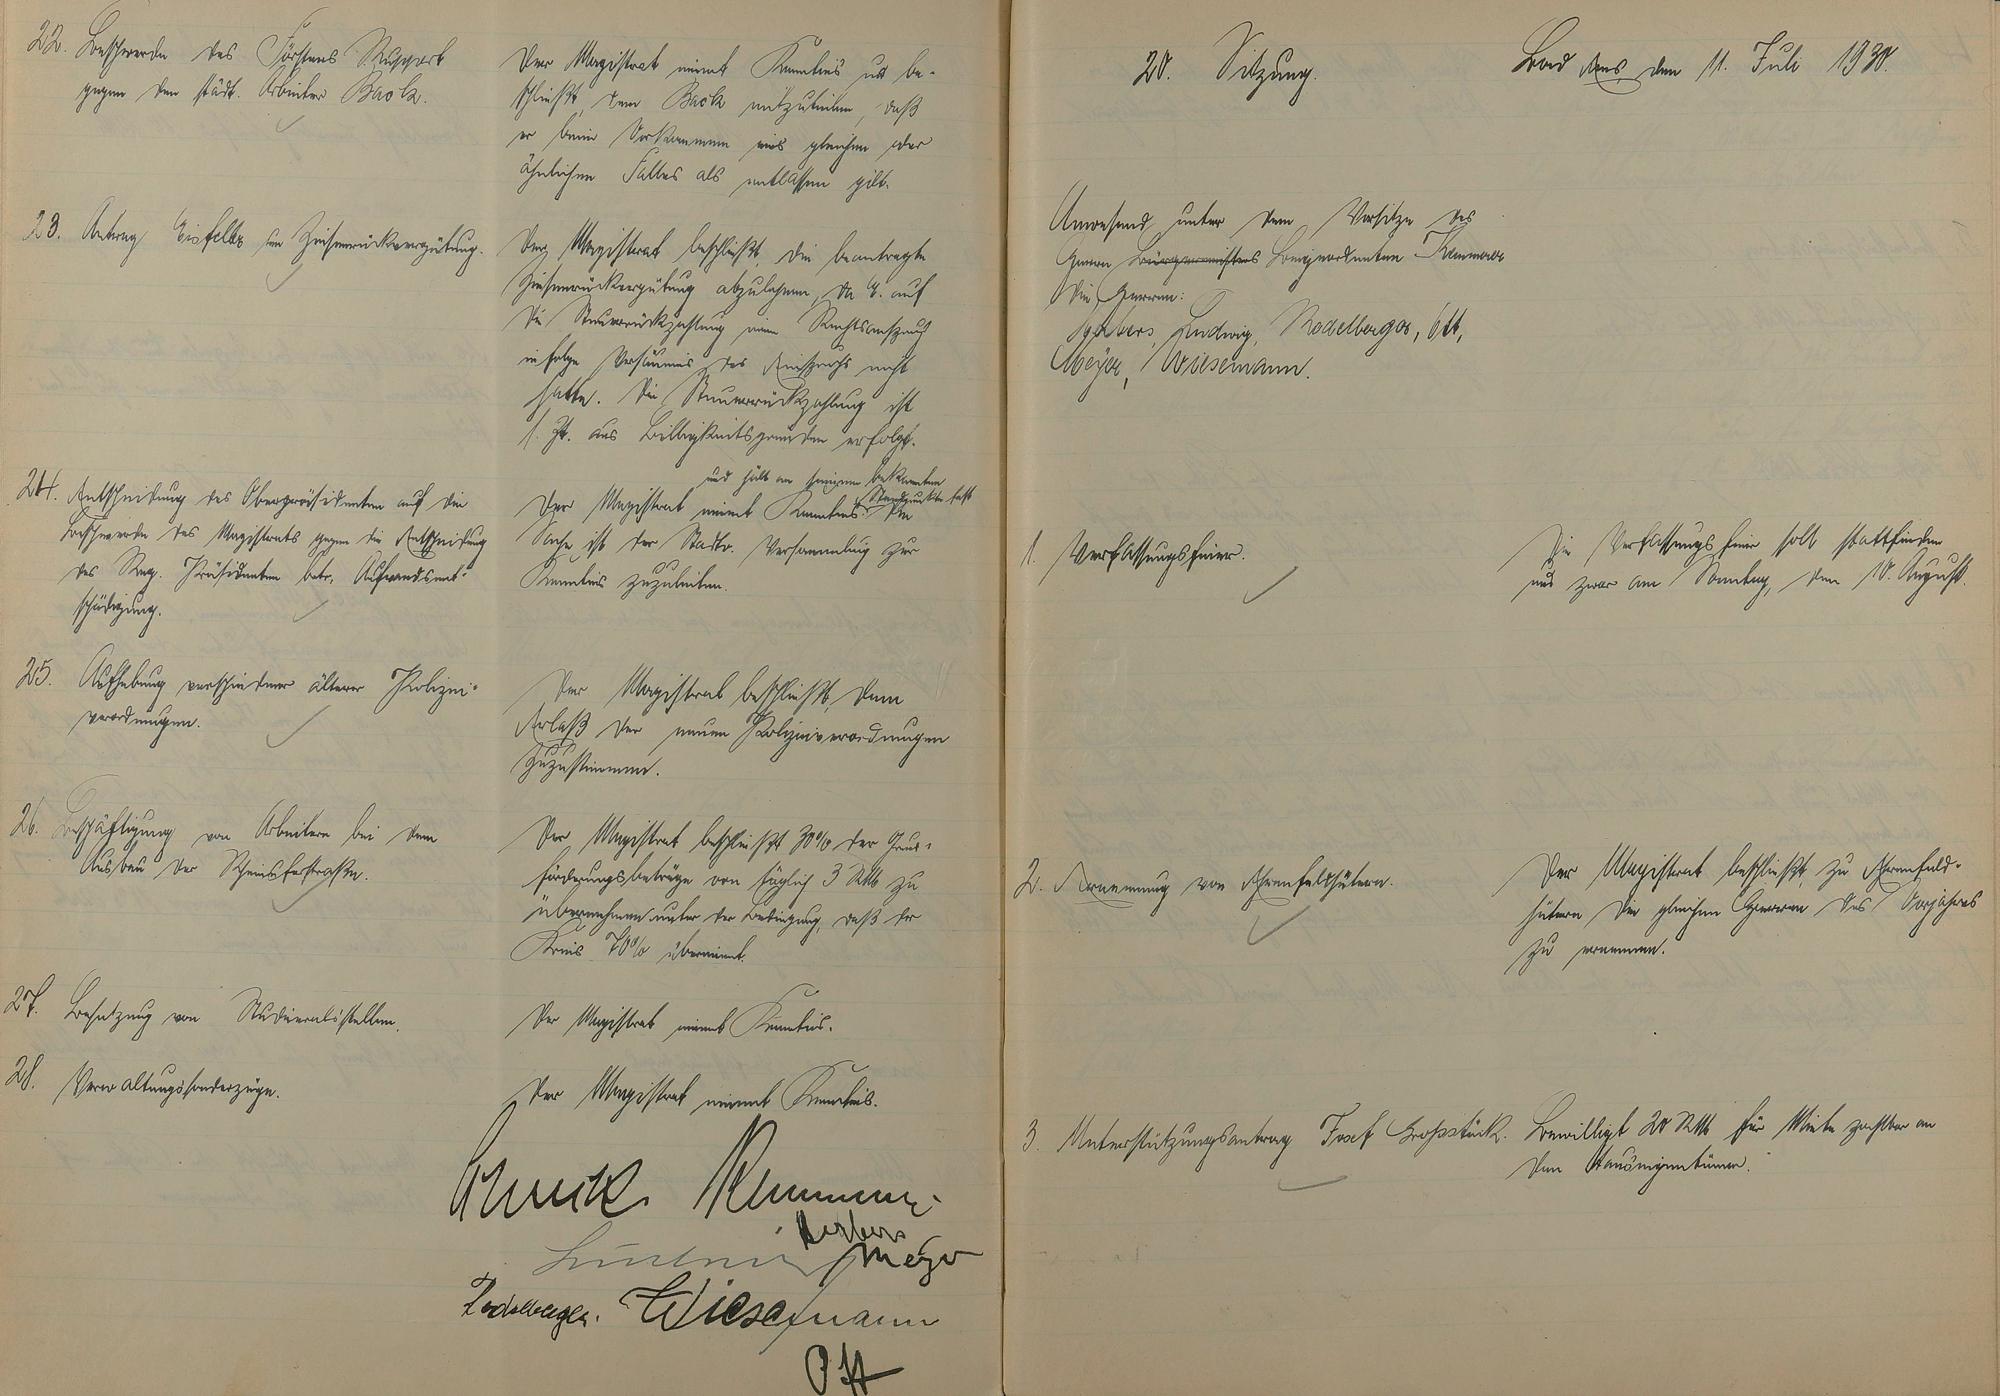 22. Beschwerde des Försters Ruppert
gegen den städt. Arbeiter Back.
Der Magistrat nimmt Kenntnis und be-
schließt, dem Back mitzuteilen, daß
er beim Vorkommen eines gleichen oder
ähnlichen Falles als entlassen gilt.
23. Antrag Eisfeller um Zinsenrückvergütung.
Der Magistrat beschließt, die beantragte
Zinsenrückvergütung abzulehnen, da E. auf
die Steuerrückzahlung einen Rechtsanspruch
infolge Versäumnis des Einspruchs nicht
hatte. Die Steuerrückzahlung ist
s. Zt. aus Billigkeitsgründen erfolgt.
24. Entscheidung des Oberpräsidenten auf die
Beschwerde des Magistrats gegen die Entscheidung
des Reg. Präsidenten betr. Aufwandsent-
schädigung.
und hält an seinem bekannten
Standpunkte fest
Der Magistrat nimmt Kenntnis. Die
Sache ist der Stadtv. Versammlung zur
Kenntnis zuzuleiten.
25. Aufhebung verschiedener älterer Polizei-
verordnungen.
Der Magistrat beschließt, dem
Erlaß der neuen Polizeiverordnungen
zuzustimmen.
26. Beschäftigung von Arbeitern bei dem
Ausbau der
Der Magistrat beschließt 30% der
förderungsbeträge von täglich 3 RM zu
übernehmen unter der Bedingung, daß der
Kreis 70% übernimmt.
27. Besetzung von Studienratsstellen.
Der Magistrat nimmt Kenntnis.
28. Verwaltungssonderzüge.
Der Magistrat nimmt Kenntnis.
Meyer
Rodelberger. Wiesemann
Ott
20. Sitzung. Bad Ems den 11. Juli 1930.
Anwesend unter dem Vorsitze des
Herrn Bürgermeisters Beigeordneten Kemmerer
die Herren:
Ludwig, Rodelberger, Ott,
Meyer, Wiesemann.
1. Verfassungsfeier.
Die Verfassungsfeier soll stattfinden
und zwar am Sonntag, den 10. August.
2. Ernennung von Ehrenfeldhütern.
Der Magistrat beschließt, zu Ehrenfeld-
hütern die gleichen Herren des Vorjahres
zu ernennen.
3. Unterstützungsantrag Josef Großstück.
Bewilligt 20 RM für Miete zahlbar an
den Hauseigentümer.